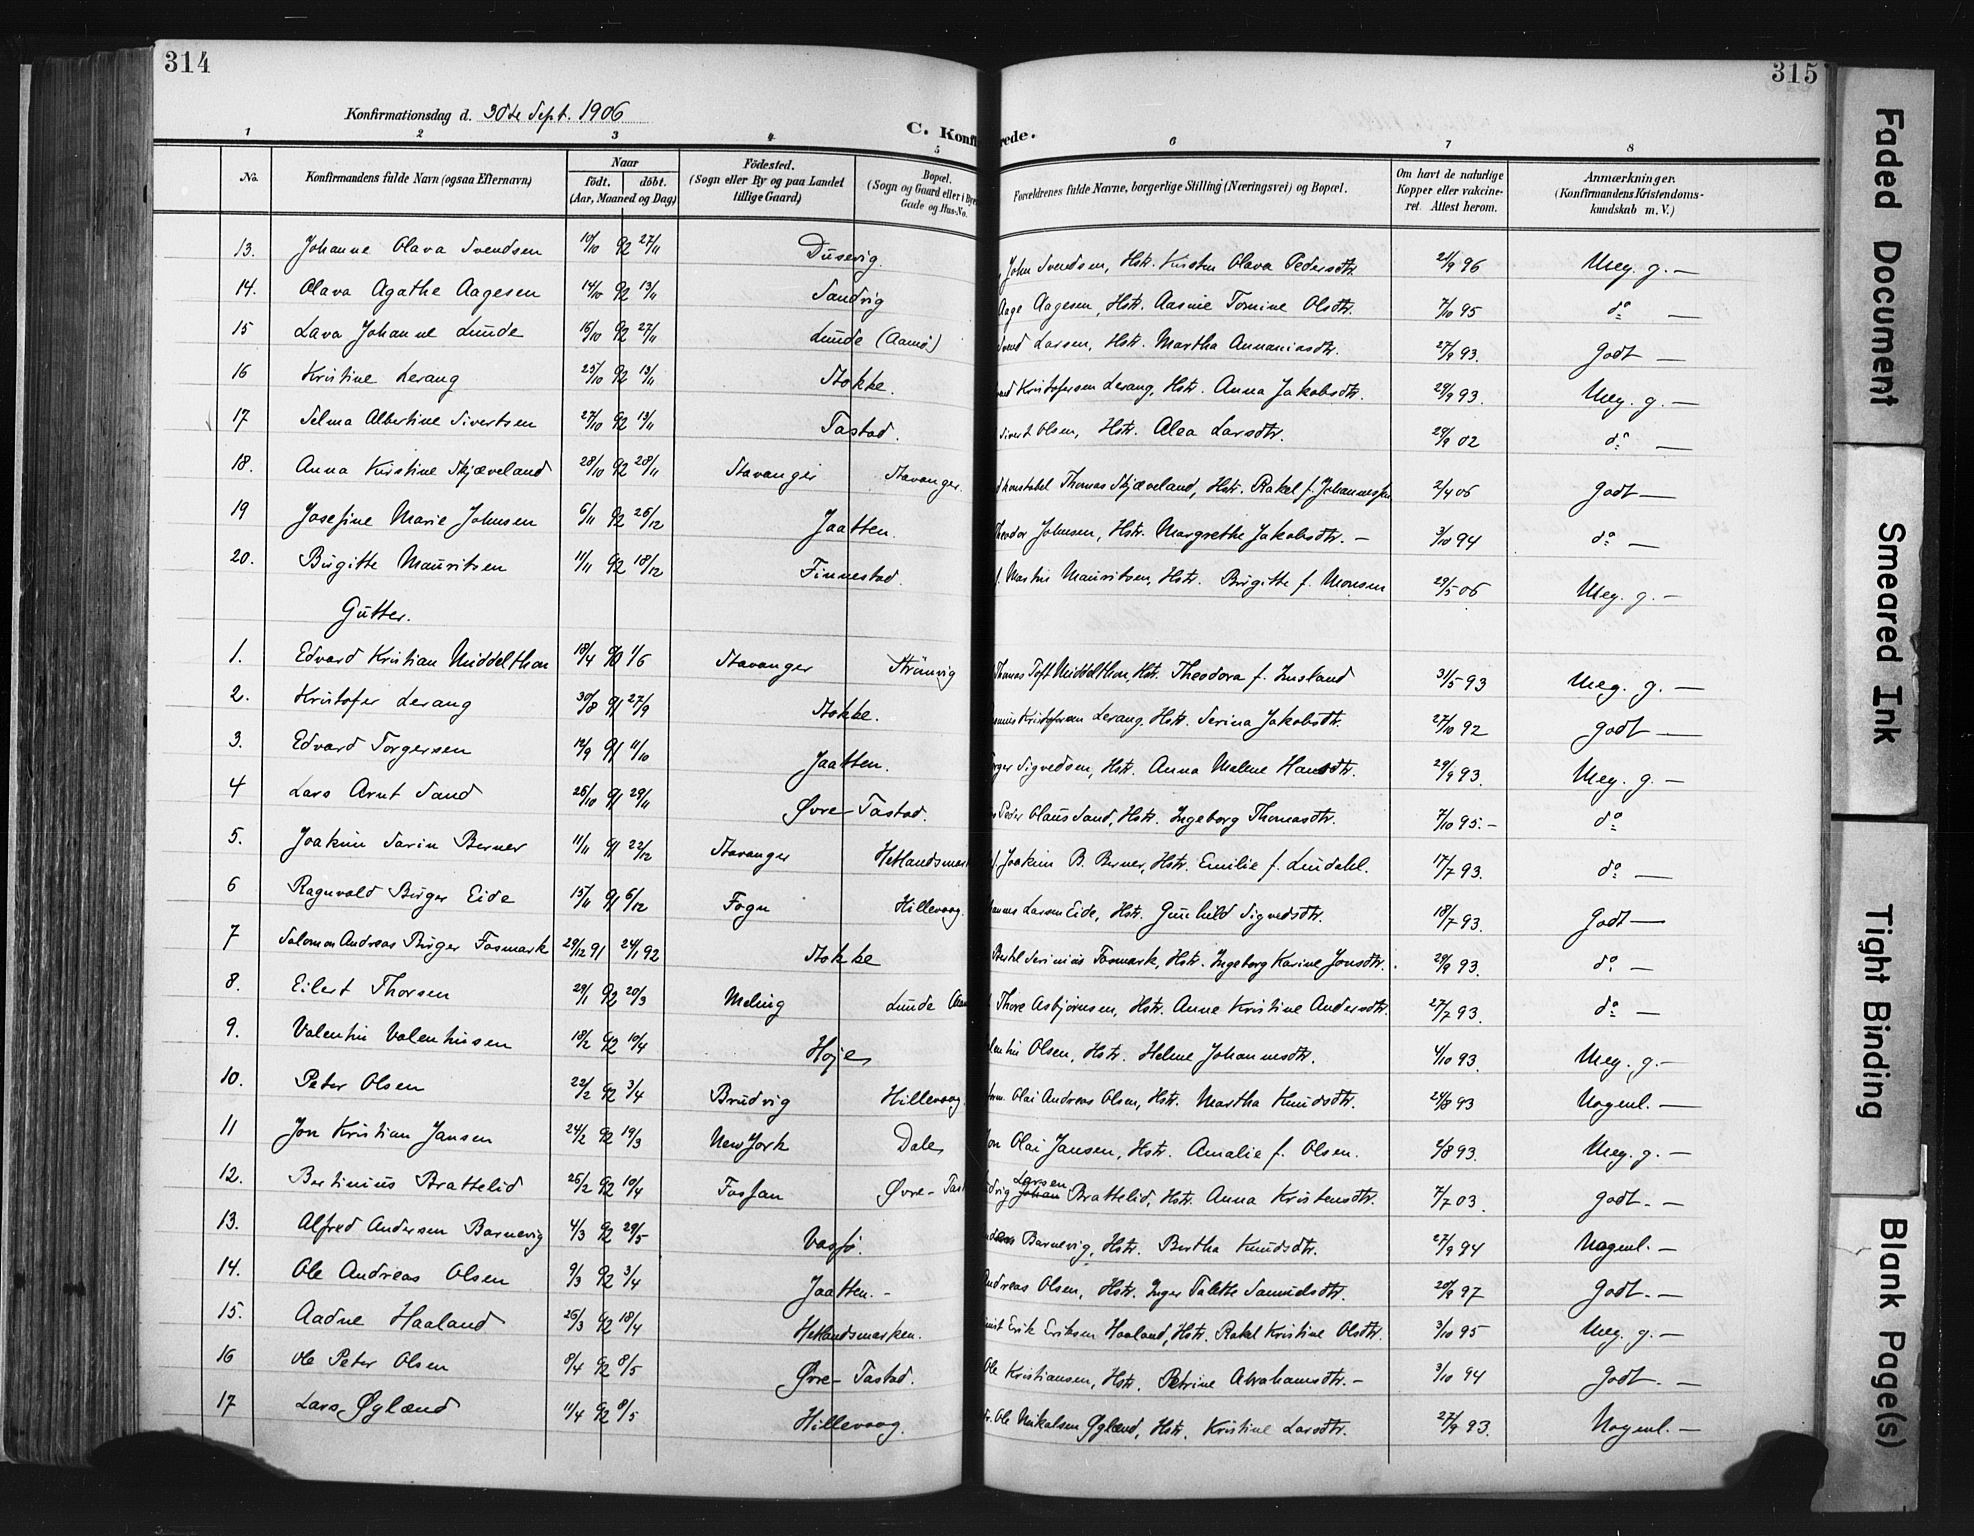 314
315
Konfirmationsdag d. 30te Sept. 1906
C. Konfi rede.
1 2 3 4 5 6 7 8
No. Konfirmandens fulde Navn (ogsaa Efternavn) Naar født. døbt. (Aar, Maaned og Dag) Födested. (Sogn eller By og paa Landet tillige Gaard) Bopæl. (Sogn og Gaard eller i Byen Gade og Hus-No. Forældrenes fulde Navne, borgerlige Stilling (Næringsvei) og Bopæl. Om havt de naturlige Kopper eller vakcineret. Attest herom. Anmærkninger. (Konfirmandens Kristendomskundskab m. V.)
13. Johanne Olava Svendsen 10/10 92 27/11 Dusevig. John Svendsen, Hstr. Kirsten Olava Pedersdtr. 21/9 96 Meg. g. —
14. Olava Agathe Aagesen 14/10 92 13/11 Sandvig Aage Aagesen, Hstr. Aasine Tomine Olsdtr. 7/10 95 do —
15 Lava Johanne Lunde 16/10 92 27/11 Lunde (Aamø) Svend Larsen, Hstr. Martha Annaniasdtr. 27/9 93. Godt —
16 Kristine Lerang 25/10 92 13/11 Stokke. Kristofersen Lerang, Hstr. Anna Jakobsdtr. 29/9 93. Meg. g. —
17 Selma Albertine Sivertsen 27/10 92 13/11 Tastad. Sivert Olsen, Hstr. Alea Larsdtr. 29/9 02 do —
18. Anna Kristine Skjæveland 28/10 92 28/11 Stavanger Stavanger. konstabel Thomas Skjæveland, Hstr. Rakel f. Johannessen 2/4 06 Godt —
19 Josefine Marie Johnsen 6/11 92 26/12 Jaatten. Theodor Johnsen, Hstr. Margrethe Jakobsdtr. — 3/10 94 do —
20. Birgitte Mauritsen 11/11 92 18/12 Finnestad. Martin Mauritsen, Hstr. Birgitte f. Monsen 29/5 06 Meg. g. —
Gutter.
1. Edvard Kristian Middelthon 18/4 90 1/6 Stavanger Strømvig Thomas Toft Middelthon, Hstr. Theodora f. Imsland 31/5 93 Meg. g. —
2. Kristofer Lerang 30/8 91 27/9 Stokke. Kristofersen Lerang, Hstr. Serina Jakobsdtr. 27/10 92 Godt —
3. Edvard Torgersen 12/9 91 11/10 Jaatten. Sigvedsen, Hstr. Anna Malene Hansdtr. 29/9 93. Meg. g. —
4 Lars Arnt Sand 26/10 91 29/11 Øvre-Tastad. Peder Olaus Sand, Hstr. Ingeborg Thomasdtr. 7/10 95. — do
5. Joakim Sarin Berner 11/11 91 22/12 Stavanger Hetlandsmar Joakim B. Berner, Hstr. Emilie f. Lindahl. 17/7 93. do —
6 Ragnvald Birger Eide 15/11 91 6/12 Fogn Hillevaag. Larsen Eide, Hstr. Gunhild Sigvedsdtr. 18/7 93. Godt —
7 Salomon Andreas Birger Fosmark 29/12 91 24/1 92 Stokke Bertel Serinius Fosmark, Hstr. Ingeborg Karine Jonsdtr. 29/9 93. do —
8. Eilert Thorsen 29/1 92 20/3 Meling Lunde Aam Thore Asbjørnsen, Hstr. Anne Kristine Andersdtr. 27/7 93. do —
9. Valentin Valentinsen 18/2 92 10/4 Høje Olsen, Hstr. Helene Johannesdtr. 4/10 93. Meg. g. —
10. Peter Olsen 22/2 92 3/4 Brudvig Hillevaag Olai Andreas Olsen, Hstr. Martha Knudsdtr. 24/8 93 Nogenl. —
11 Jon Kristian Jansen 24/2 92 19/3 New York Dale Olai Jansen, Hstr. Amalie f. Olsen. 2/8 93. Meg. g. —
12. Bertinius Brattelid 26/2 92 10/4 Fossan Øvre-Tast Larsen Johan Brattelid, Hstr. Anna Kristensdtr. 7/7 03. Godt. —
13. Alfred Andersen Barnevig 4/3 92 29/5 Vasfø. Barnevig, Hstr. Bertha Knudsdtr. 27/9 94 Nogenl. —
14. Ole Andreas Olsen 9/3 92 3/4 Jaatten. — Andreas Olsen, Hstr. Inger Talette Samuelsdtr. 20/9 97 Godt. —
15. Aadne Haaland 26/3 92 18/4 Hetlandsmarken. Erik Eriksen Haaland, Hstr. Rakel Kristine Olsdtr. 3/10 95 Meg. g. —
16 Ole Peter Olsen 8/4 92 8/5 Øvre-Tastad. Ole Kristiansen, Hstr. Petrine Abrahamsdtr. — 3/10 94 Godt. —
17 Lars Øglænd 11/4 92 8/5 Hillevaag. Ole Nikalsen Øglænd, Hstr. Kristine Larsdtr. 27/9 93. Nogenl. —
Faded Document
Smeared Ink
Tight Binding
Blank Page(s)